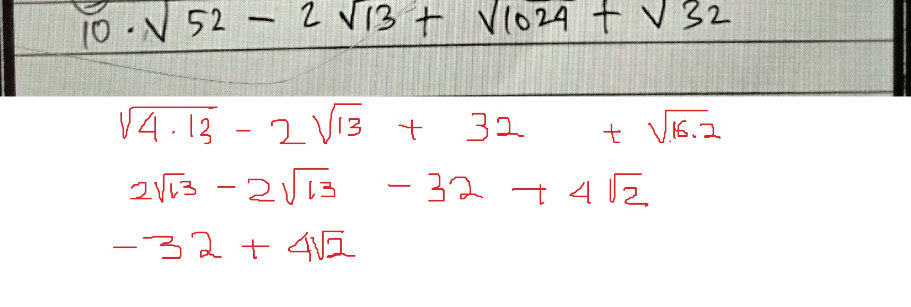 10. √52 - 2 √13 + √1024 + √32
√4.13 - 2 √13 + 32 + √16.2
2√13 - 2√13 - 32 + 4√2
-32 + 4√2